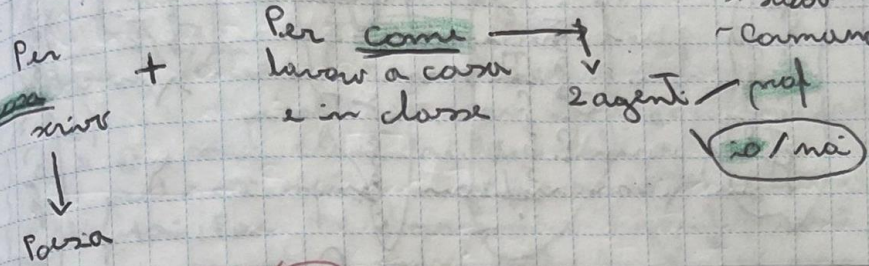 Per
scrivo
↓
Poesia
+
Per come →
lavoro a casa
e in classe
2 agenti
- Comun
prof
io/noi